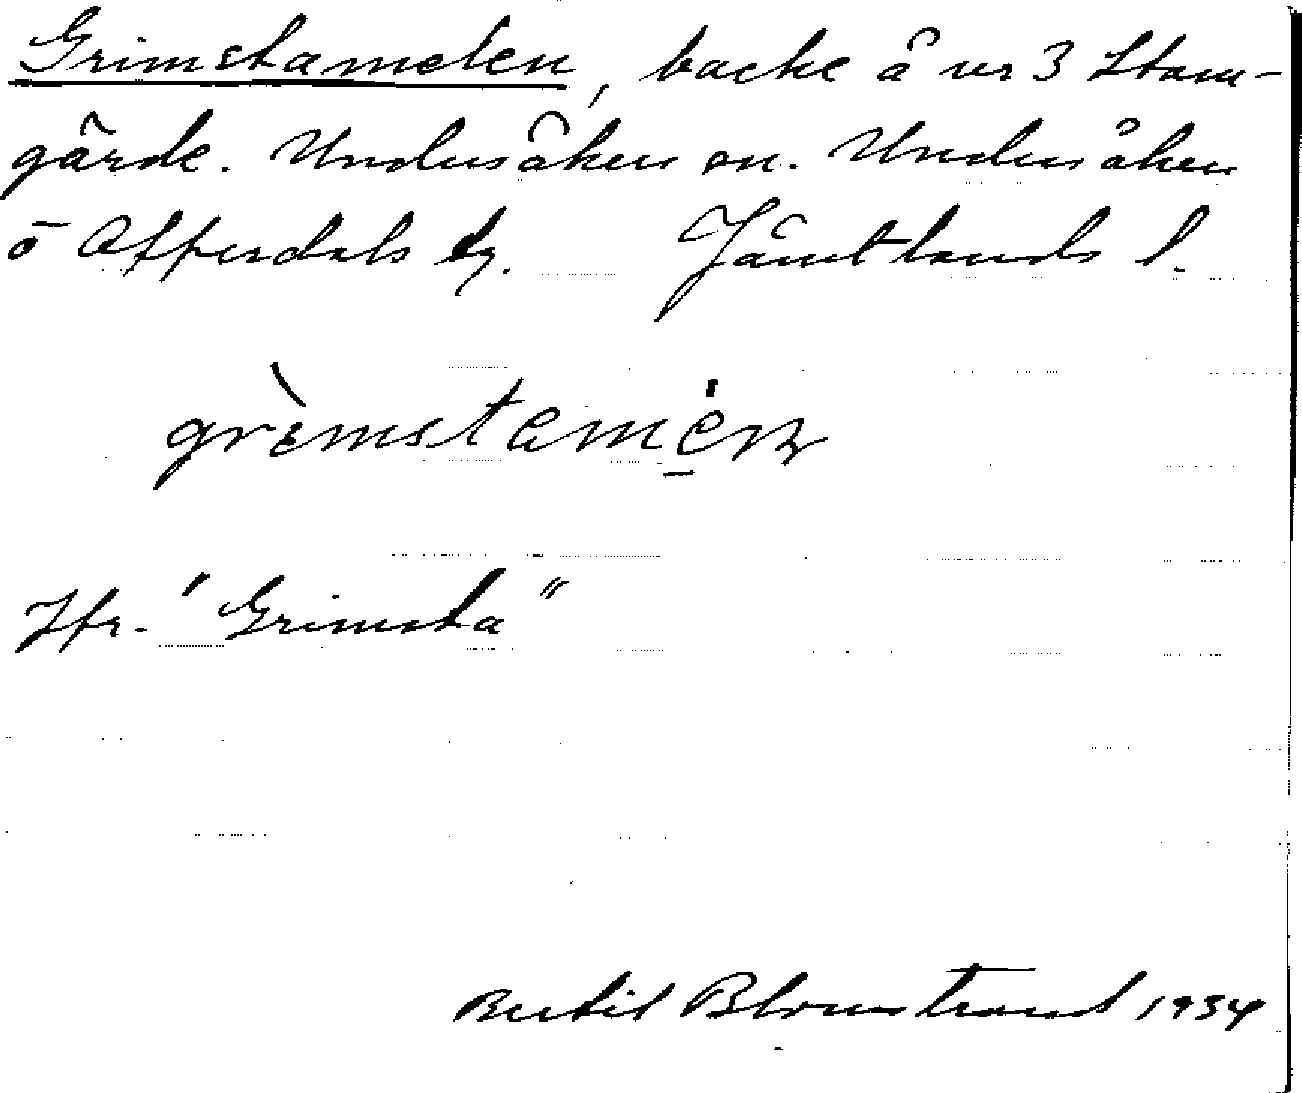 Grimstamelen, backe å nr 3 Stam-
gärde. Undersåkers sn. Undersåkers
o Offerdals tg. Jämtlands l.
grèmstamen
Jfr. "Grimsta"
Bertil Blomstrand 1934